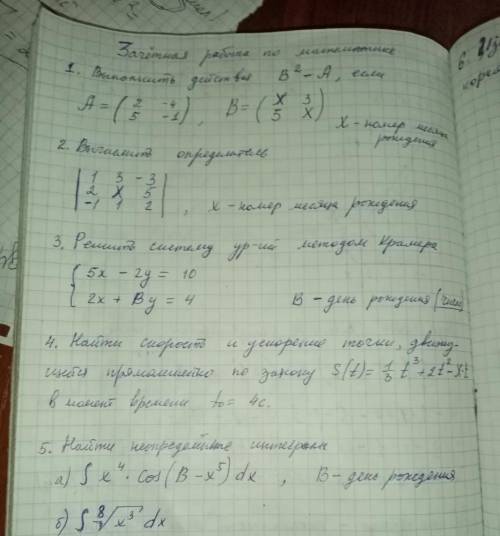 Зачётная работа по математике
1. Выполнить действия B² - A, если
A = ( 2 -4 ; 5 -1 ), B = ( X 3 ; 5 X )
X - номер месяца рождения
2. Вычислить определитель
| 1 3 -3 |
| 2 X 5 |
| -1 1 2 |, X - номер месяца рождения
3. Решить систему ур-ий методом Крамера
{ 5x - 2y = 10
2x + By = 4 B - день рождения (число)
4. Найти скорость и ускорение точки, движу-
щейся прямолинейно по закону S(t) = 1/3 t³ + 2t²
в момент времени t₀ = 4с.
5. Найти неопределённые интегралы
а) ∫ x⁴ · cos(B - x⁵) dx, B - день рождения
б) ∫ ⁸√x³ dx
6.